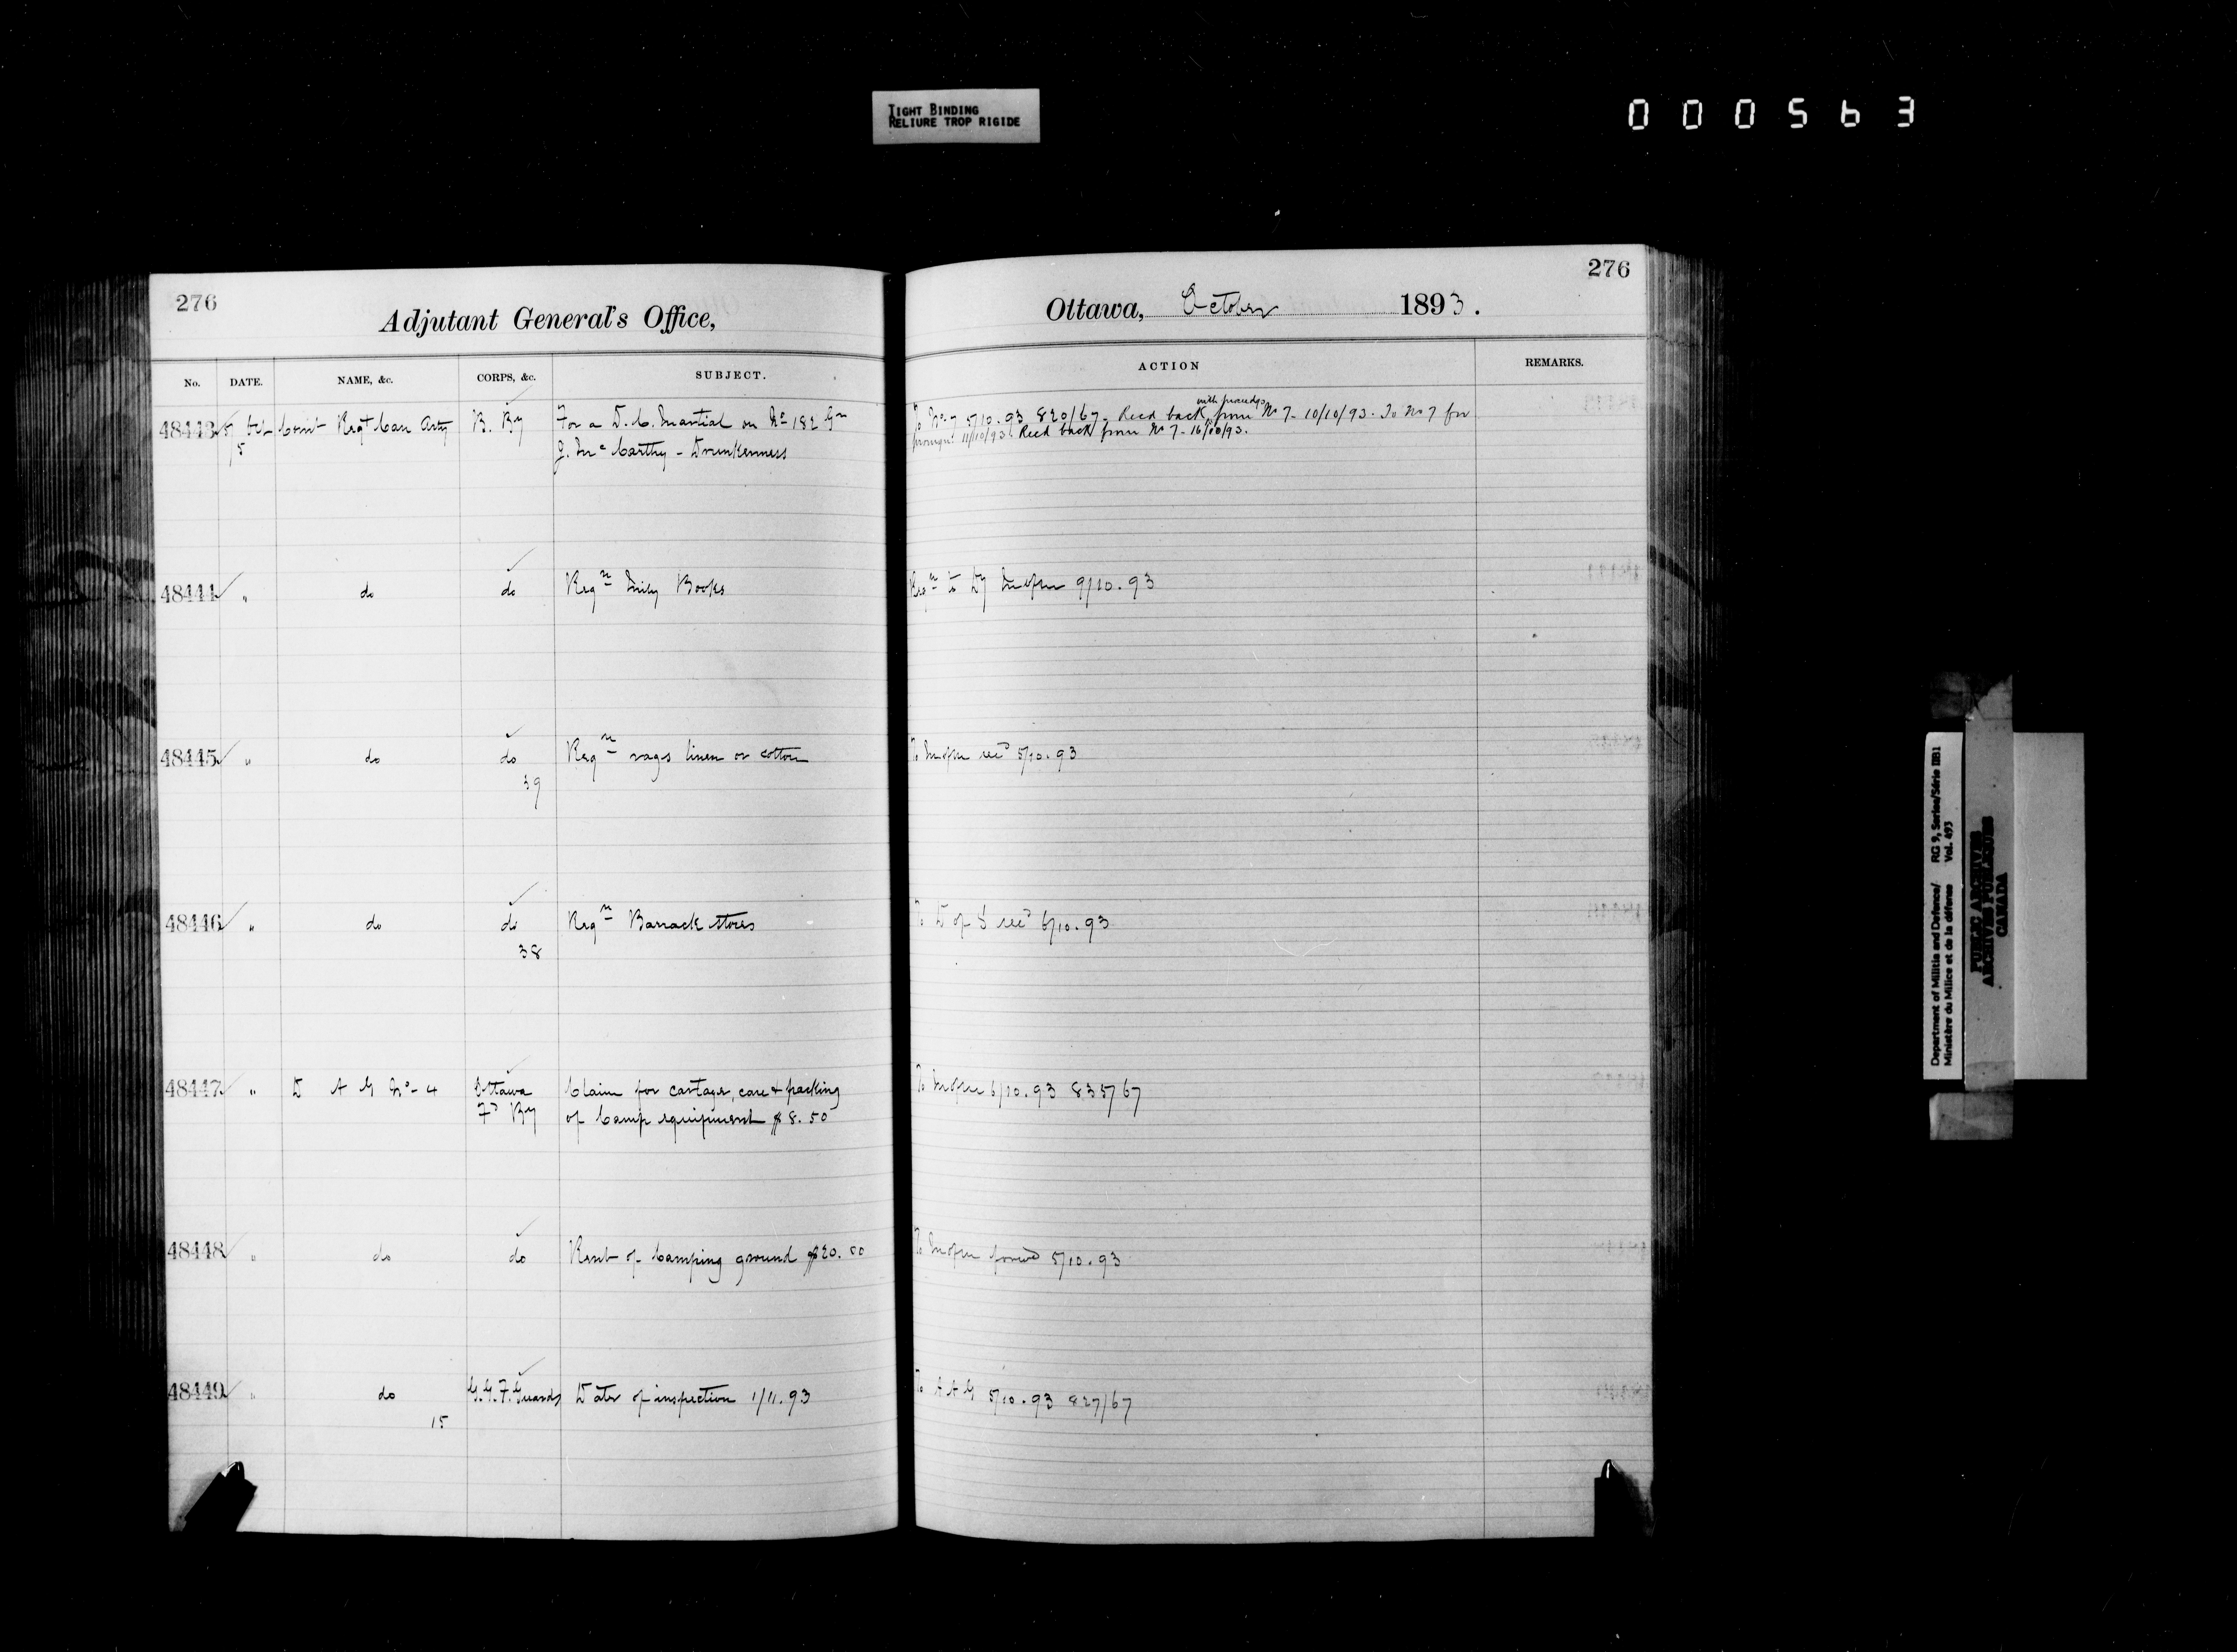 TIGHT BINDING
RELIURE TROP RIGIDE
000563
276
Adjutant General's Office,
No. DATE. NAME, &c. CORPS, &c. SUBJECT.
48443 5 Oct Comt Regt Can Arty B. By For a D. C. Martial on No 182 Gr
5 J. McCarthy - Drunkenness
48444 " do do Reqn Mily Books
48445 " do do Reqn rags linen or cotton
39
48446 " do do Reqn Barrack stores
38
48447 " D A G No - 4 Ottawa Claim for cartage, care & packing
Fd By of Camp equipment $8.50
48448 " do do Rent of Camping ground $20.00
48449 " do G.G.F. Guards Date of inspection 1/11.93
15
276
Ottawa, October 1893.
ACTION REMARKS.
with proceedgs
To No 7 5/10.93 820/67. Recd back from No 7 - 10/10/93. To No 7 for
11/10/93. Recd back from No 7 - 16/10/93.
Reqn to 9/10.93
To 5/10.93
To D of S 6/10.93
To 6/10.93 835/67
To 5/10.93
To A A G 5/10.93 827/67
Department of Militia and Defence/ RG 9, Series/Série IIB1
Ministère du Milice et de la défense Vol. 493
PUBLIC ARCHIVES
ARCHIVES PUBLIQUES
CANADA